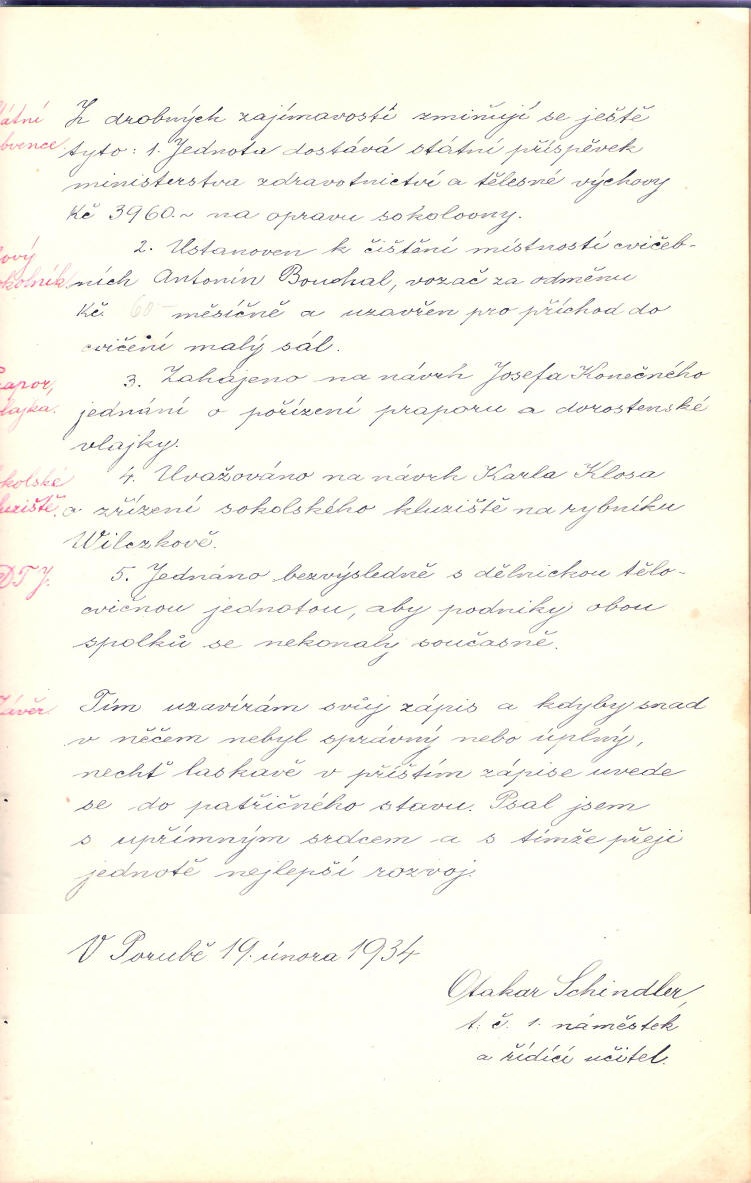 Z drobných zajímavostí zmiňují se ještě
tyto: 1. Jednota dostává státní příspěvek
ministerstva zdravotnictví a tělesné výchovy
Kč 3960.~ na opravu sokolovny.
2. Ustanoven k čištění místností cvičeb-
ních Antonín Bouchal, vozač za odměnu
Kč 60 měsíčně a uzavřen pro příchod do
cvičení malý sál.
3. Zahájeno na návrh Josefa Konečného
jednání o pořízení praporu a dorostenské
vlajky.
4. Uvažováno na návrh Karla Klosa
o zřízení sokolského kluziště na rybníku
Wilczkově.
5. Jednáno bezvýsledně s dělnickou tělo-
cvičnou jednotou, aby podniky obou
spolků se nekonaly současně.
Tím uzavírám svůj zápis a kdyby snad
v něčem nebyl správný nebo úplný,
nechť laskavě v příštím zápise uvede
se do patřičného stavu. Psal jsem
s upřímným srdcem a s tímže přeji
jednotě nejlepší rozvoj.
V Porubě 19. února 1934
Otakar Schindler,
t. č. 1. náměstek
a řídící učitel.
átní
bvence.
ový
okolník
rapor,
lajka.
kolské
uziště.
DTJ.
Závěr.